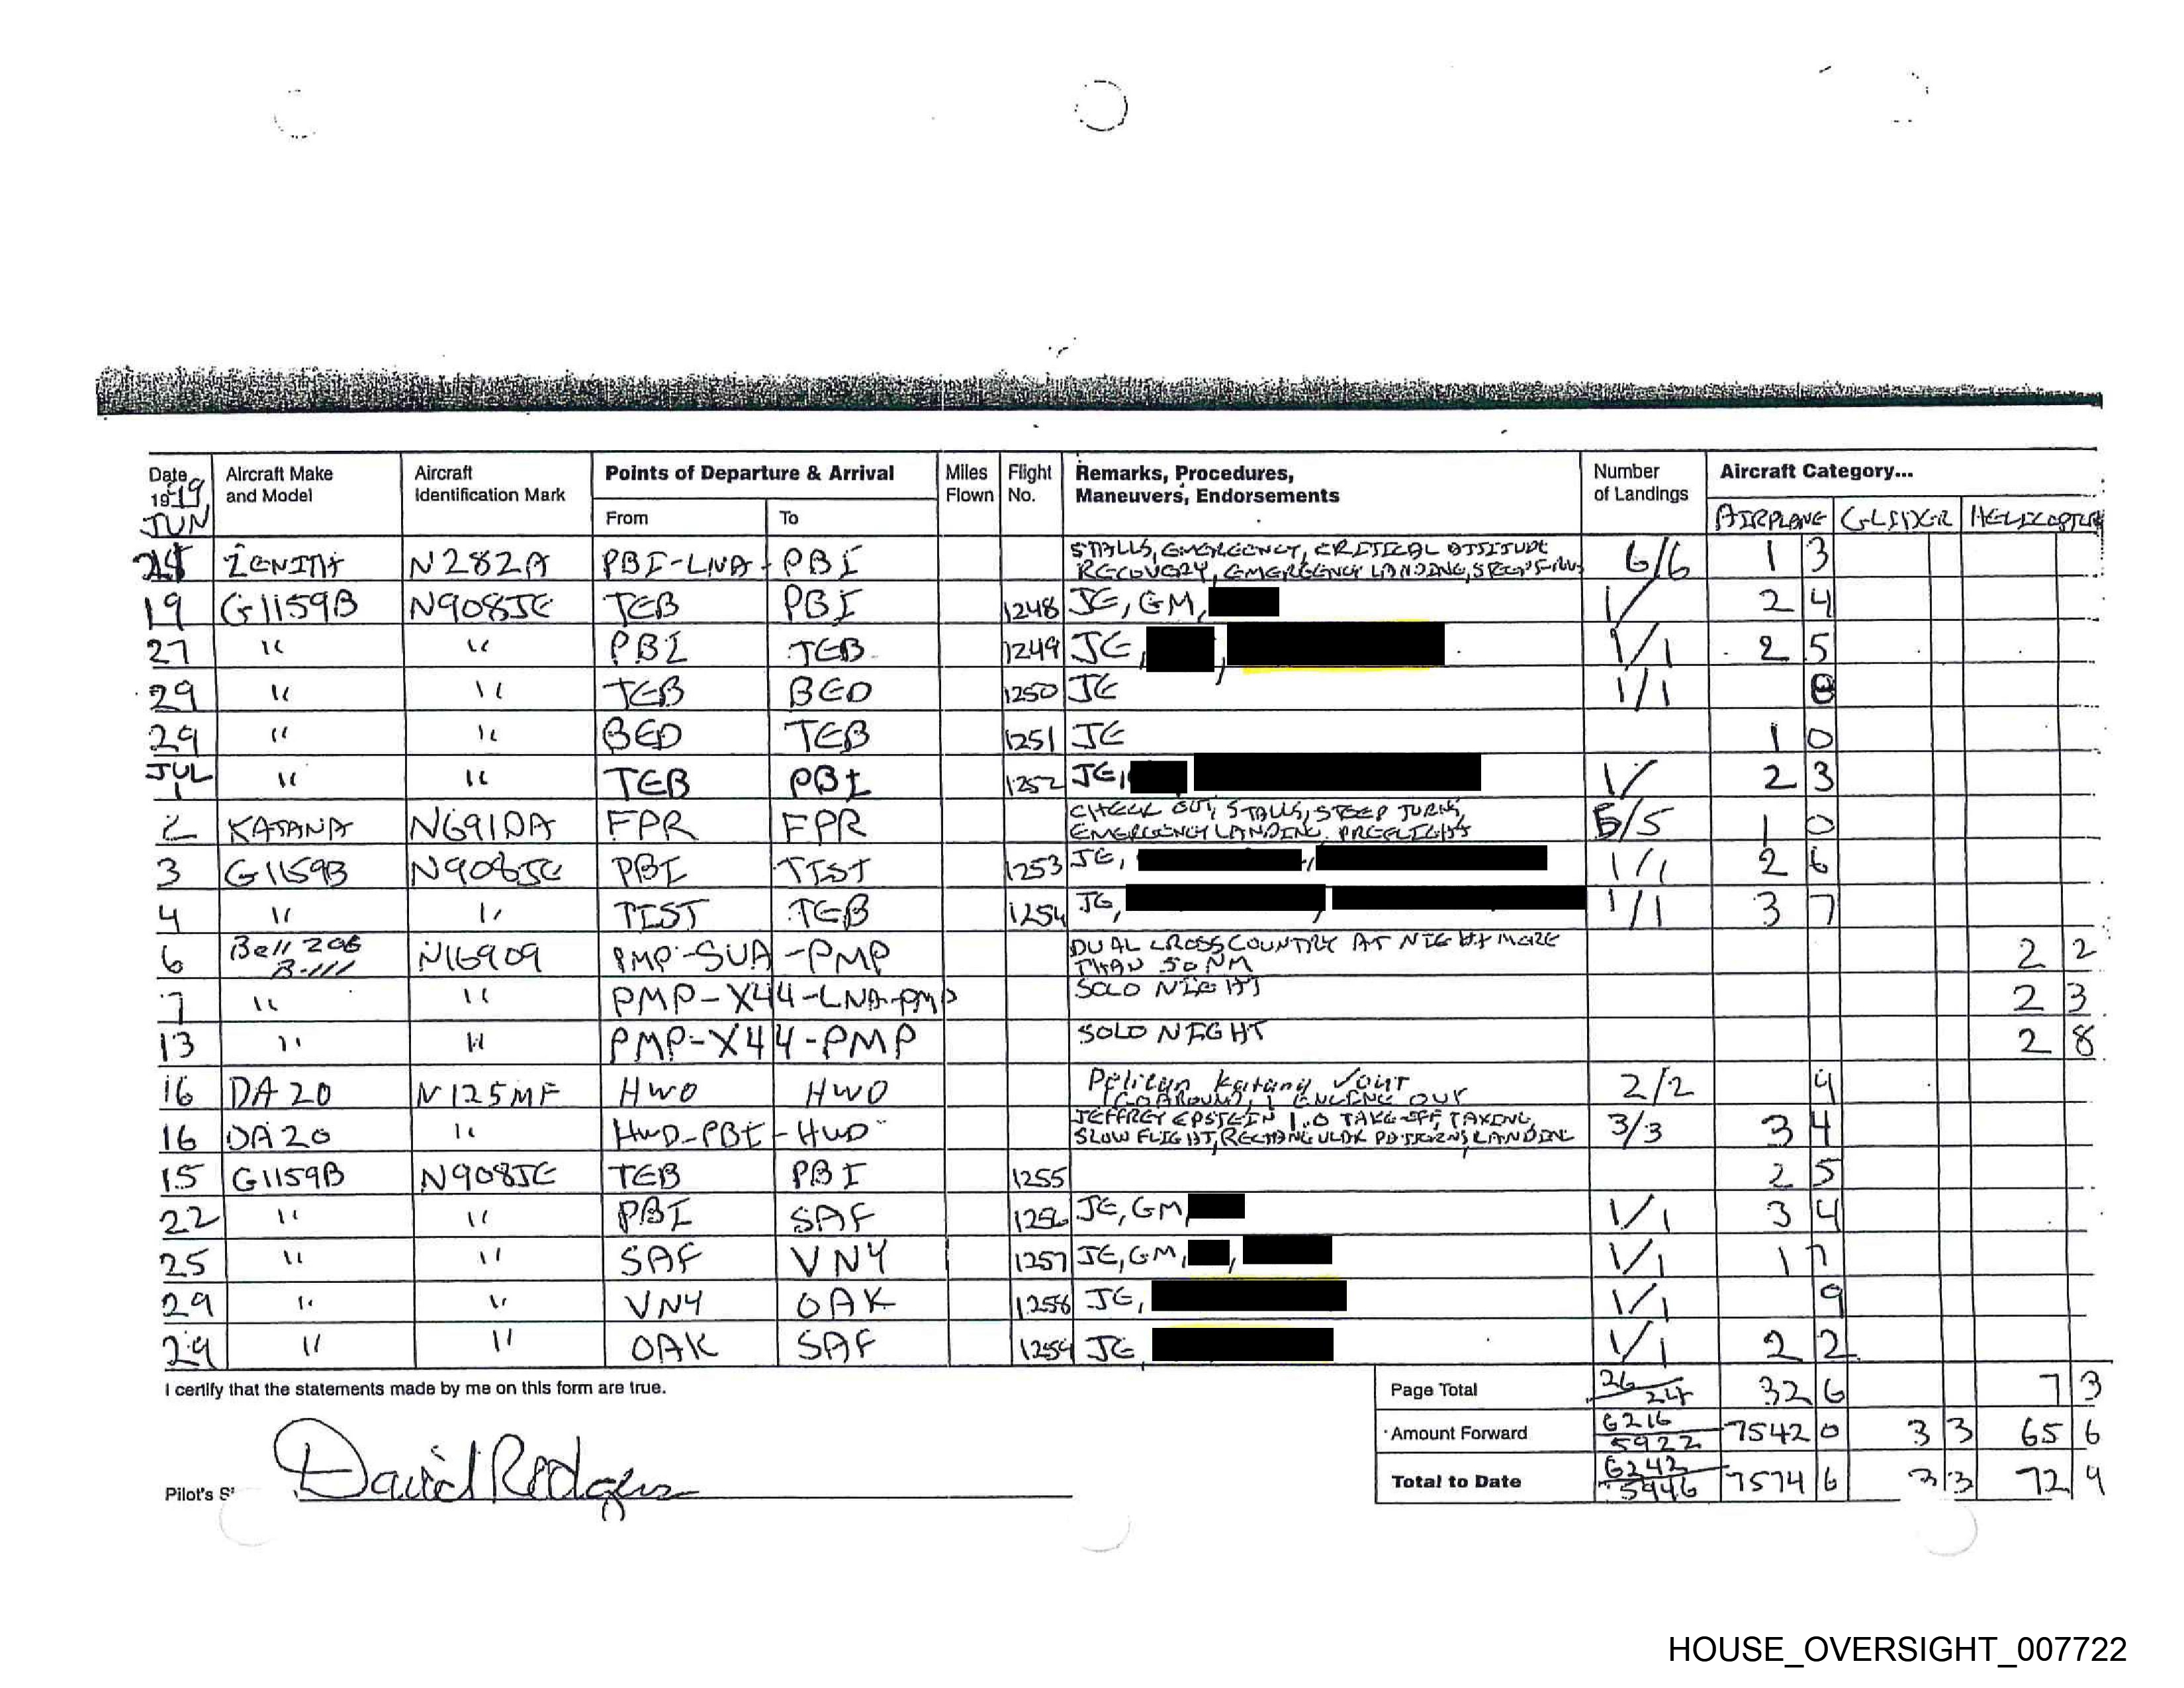 Date Aircraft Make and Model Aircraft Identification Mark Points of Departure & Arrival Miles Flown Flight No. Remarks, Procedures, Maneuvers, Endorsements Number of Landings Aircraft Category...
19 JUN From To AIRPLANE GLIDER HELICOPTER
ZENITH N282A PBI-LNA-PBI STALLS, EMERGENCY, CRITICAL ATTITUDE 6/6 1 3
RECOVERY, EMERGENCY LANDING,
19 G1159B N908JE TEB PBI 1248 JE, GM, 1/ 2 4
27 " " PBI TEB 1249 JE, , 1/1 2 5
29 " " TEB BED 1250 JE 1/1 8
29 " " BED TEB 1251 JE 1 0
JUL 1 " " TEB PBI 1252 JE, 1/ 2 3
2 KATANA N691DA FPR FPR CHECK OUT, STALLS, STEEP TURNS, 5/5 1 0
EMERGENCY LANDING. PREFLIGHT
3 G1159B N908JE PBI TIST 1253 JE, , 1/1 2 6
4 " " TIST TEB 1254 JE, , 1/1 3 7
6 Bell 206 B-III N16909 PMP-SUA-PMP DUAL CROSS COUNTRY AT NIGHT MORE 2 2
THAN 50 NM
7 " " PMP-X44-LNA-PMP SOLO NIGHT 2 3
13 " " PMP-X44-PMP SOLO NIGHT 2 8
16 DA20 N125MF HWO HWO Katana 2/2 4
GOAROUND, 1 ENGINE OUT
16 DA20 " HWO-PBI-HWO JEFFREY EPSTEIN 1.0 TAKE-OFF, TAXING, 3/3 3 4
SLOW FLIGHT, RECTANGULAR PATTERNS, LANDING
15 G1159B N908JE TEB PBI 1255 2 5
22 " " PBI SAF 1256 JE, GM, 1/1 3 4
25 " " SAF VNY 1257 JE, GM, , 1/1 1 7
29 " " VNY OAK 1258 JE, 1/1 9
29 " " OAK SAF 1259 JE 1/1 2 2
I certify that the statements made by me on this form are true. Page Total 26/24 32 6 7 3
Amount Forward 6216/5922 7542 0 3 3 65 6
Pilot's S David Rodgers Total to Date 6242/5946 7574 6 3 3 72 9
HOUSE_OVERSIGHT_007722